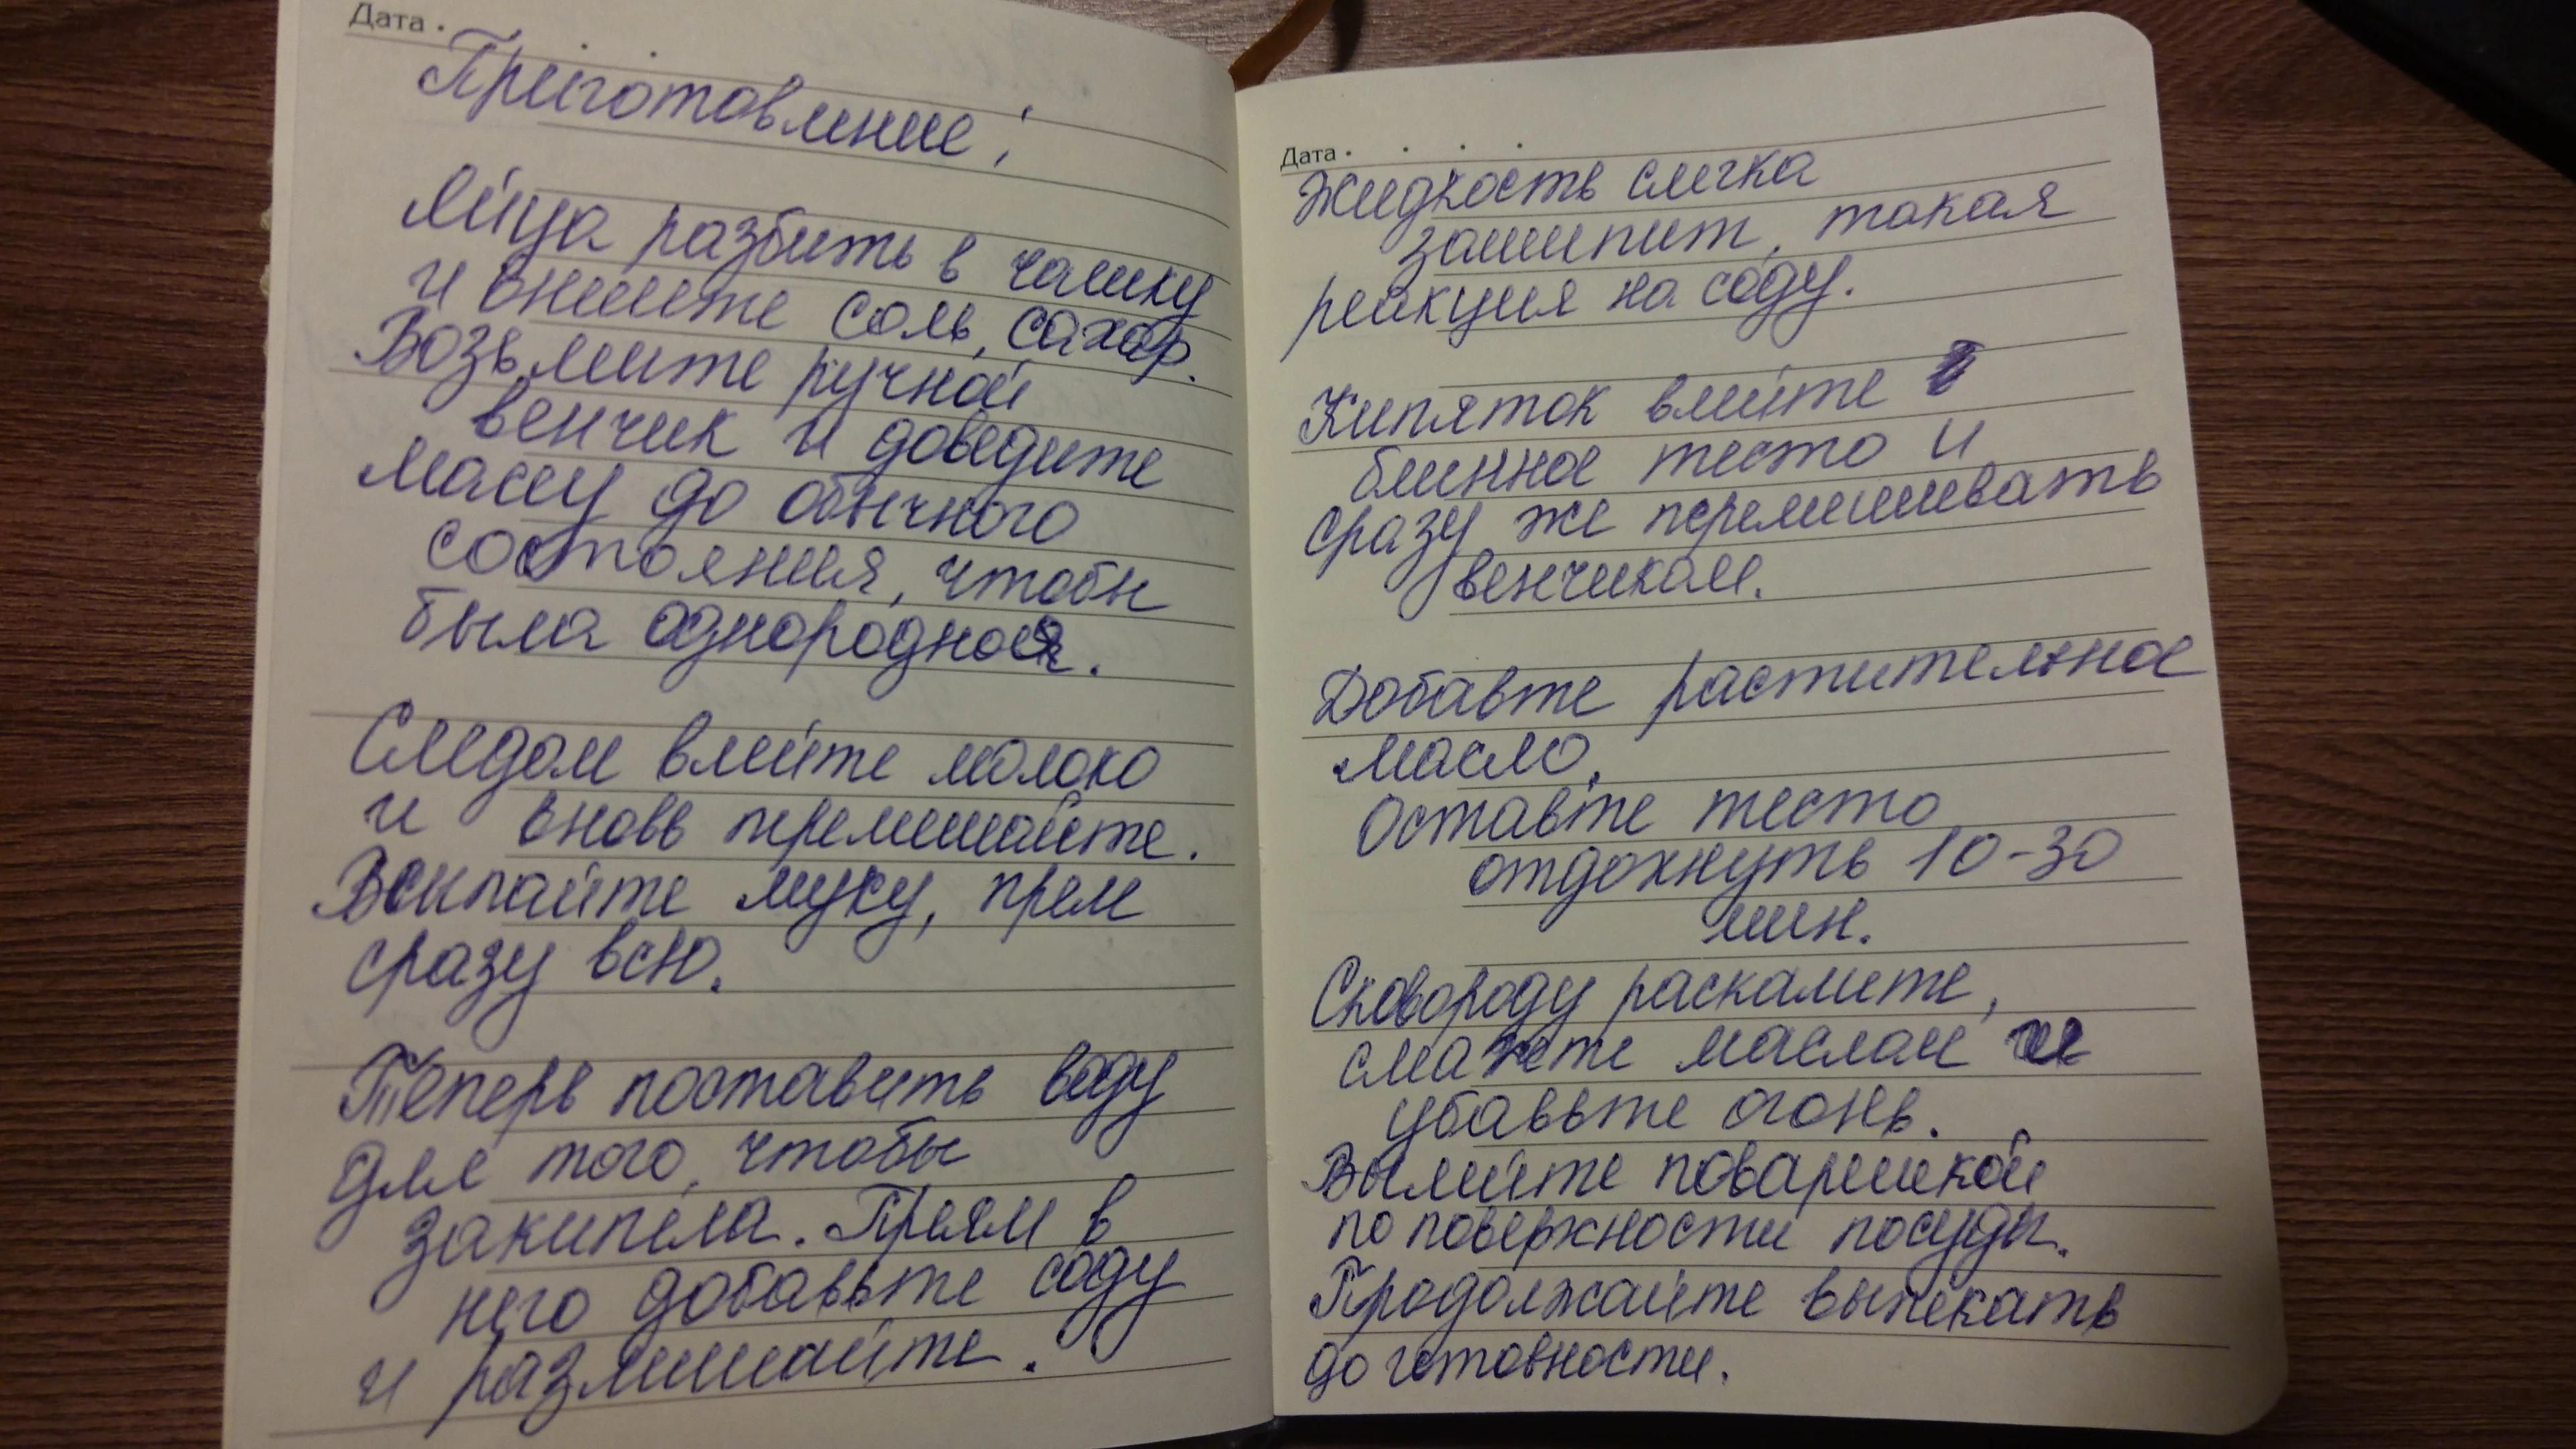 Дата
Приготовление:
Яйца разбить в чашку
и внесите соль, сахар.
Возьмите ручной
венчик и доведите
массу до обычного
состояния, чтобы
была однородная.
Следом влейте молоко
и вновь перемешайте.
Всыпайте муку, прям
сразу всю.
Теперь поставить воду
для того, чтобы
закипела. Прям в
него добавьте соду
и размешайте.
Дата
Жидкость слегка
зашипит, такая
реакция на соду.
Кипяток влейте в
блинное тесто и
сразу же перемешивать
венчиком.
Добавте растительное
масло.
Оставте тесто
отдохнуть 10-30
мин.
Сковороду раскалите,
смажте маслом и
убавьте огонь.
Вылейте поварешкой
по поверхности посуды.
Продолжайте выпекать
до готовности.